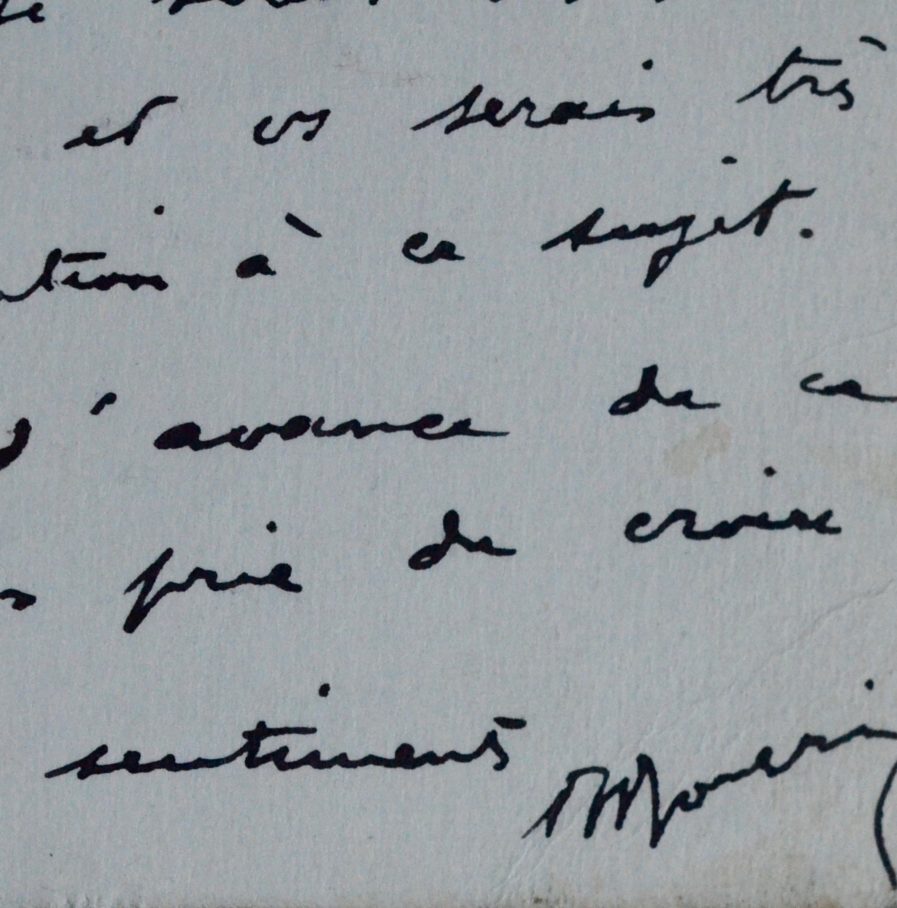 et vs serais trè
ation à ce sujet.
d'avance de ce
s prie de croire
sentiments